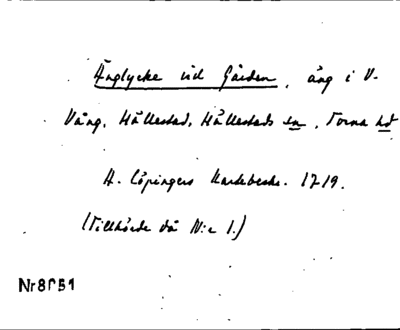 Änglycke vid Gården, äng i V.
Vång, Hällestad, Hällestads sn, Torna hd
A. Cöpingers Kartebeskr. 1719.
(Tillhörde då N:r 1.)
Nr8051